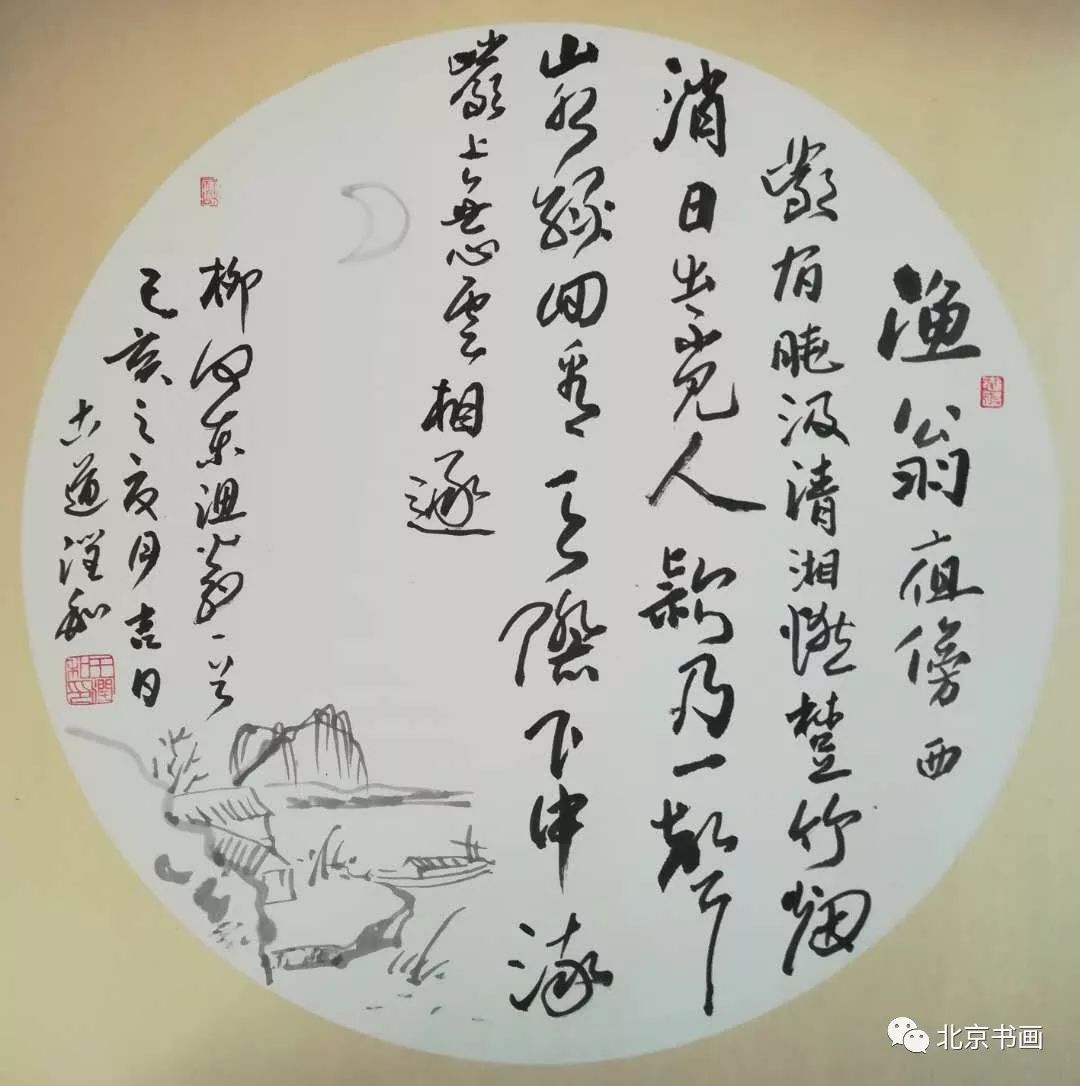 渔翁夜傍西
巖宿晓汲清湘燃楚竹烟
消日出不见人欸乃一声
山水绿回看天際下中流
巖上無心雲相逐
柳河东渔翁一首
己亥之亥月吉日
古道润和
北京书画